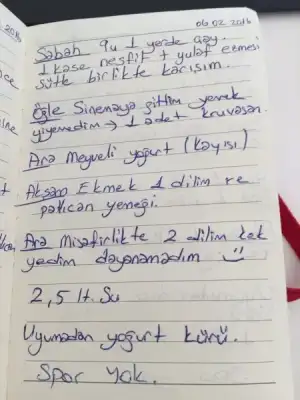 06.02.2016
Sabah 9u 1 yerde çay.
1 kase nesfit + yulaf ezmesi
sütle birlikte karışım.
Öğle Sinemaya gittim yemek
yiyemedim → 1 adet kruvasan.
Ara Meyveli yoğurt (kayısı)
Akşam Ekmek 1 dilim ve
patlıcan yemeği.
Ara Misafirlikte 2 dilim kek
yedim dayanamadım
2,5 lt. Su
Uyumadan yoğurt kürü.
Spor Yok.